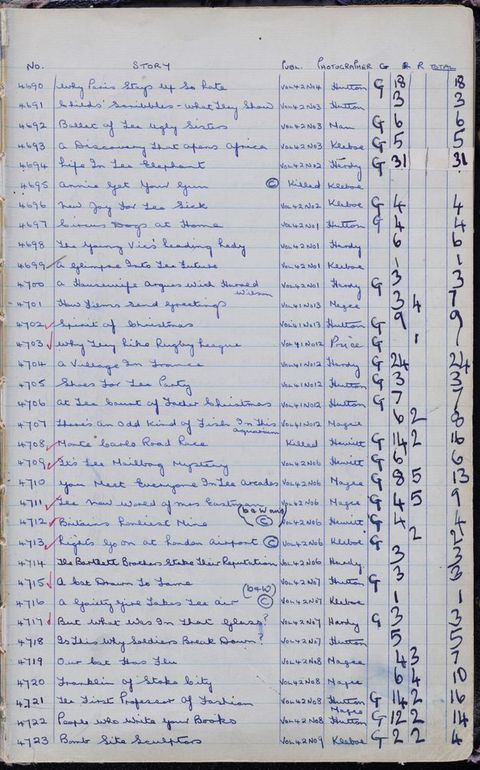 NO. STORY PUBL. PHOTOGRAPHER G B R TOTAL
4690 Why Paris Stays Up So Late Vol 42 No 4 Hutton G 18 18
4691 Childs' Scribbles - What They Show Vol 42 No 3 Hutton 3 3
4692 Ballet of The Ugly Sisters Vol 42 No 3 Man G 6 6
4693 A Discovery That Opens Africa Vol 42 No 3 Kleboe G 5 5
4694 Life In The Elephant Vol 42 No 2 Hardy G 31 31
4695 Annie Get Your Gun © Killed Kleboe
4696 New Joy For The Sick Vol 42 No 2 Kleboe G 4 4
4697 Circus Dogs at Home Vol 42 No 1 Hutton G 4 4
4698 The Young Vic's Leading Lady Vol 42 No 1 Hardy 6 6
4699 A Glimpse Into The Future Vol 42 No 1 Kleboe 1 1
4700 A Housewife Argues With Harold Wilson Vol 42 No 1 Hardy G 3 3
4701 How Films Send Greetings Vol 41 No 13 Magee 3 4 7
4702 Spirit of Christmas Vol 41 No 13 Hutton G 9 9
4703 Why They Like Rugby League Vol 41 No 12 Price G 1 1
4704 A Village In France Vol 41 No 12 Hardy G 24 24
4705 Shoes For The Party Vol 41 No 12 Hutton G 3 3
4706 At The Court of Father Christmas Vol 41 No 12 Hutton G 7 7
4707 There's an Odd Kind of Fish In This Aquarium Vol 41 No 12 Magee 6 2 8
4708 Monte Carlo Road Race Killed Hewitt G 14 2 16
4709 It's The Mailbag Mystery Vol 42 No 6 Hewitt G 6 6
4710 You Meet Everyone In The Arcades Vol 42 No 6 Magee G 8 5 13
4711 The New World of Mrs Eastman Vol 42 No 6 Magee G 4 5 9
4712 Britains Loneliest Mine (b&w only) © Vol 42 No 6 Hewitt G 4 4
4713 Lights Go on at London Airport © Vol 42 No 6 Kleboe G 2 2
4714 The Bartlett Brothers Stake Their Reputation Vol 42 No 6 Hardy 3 3
4715 A Cat Drawn To Fame Vol 42 No 7 Hutton G 3 3
4716 A Gaiety Girl Takes The Air (b&w) © Vol 42 No 7 Kleboe 1 1
4717 But What Was In That Glass? Vol 42 No 7 Hardy G 3 3
4718 Is This Why Soldiers Break Down? Vol 42 No 7 Hutton 5 5
4719 Our Cat Has Flu Vol 42 No 8 Magee 4 3 7
4720 Franklin of Stoke City Vol 42 No 8 Magee 6 4 10
4721 The First Professor of Fashion Vol 42 No 8 Hutton G 14 2 16
4722 People Who Write Your Books Vol 42 No 8 Magee Hutton G 12 2 14
4723 Bomb Site Sculptors Vol 42 No 9 Kleboe G 2 2 4